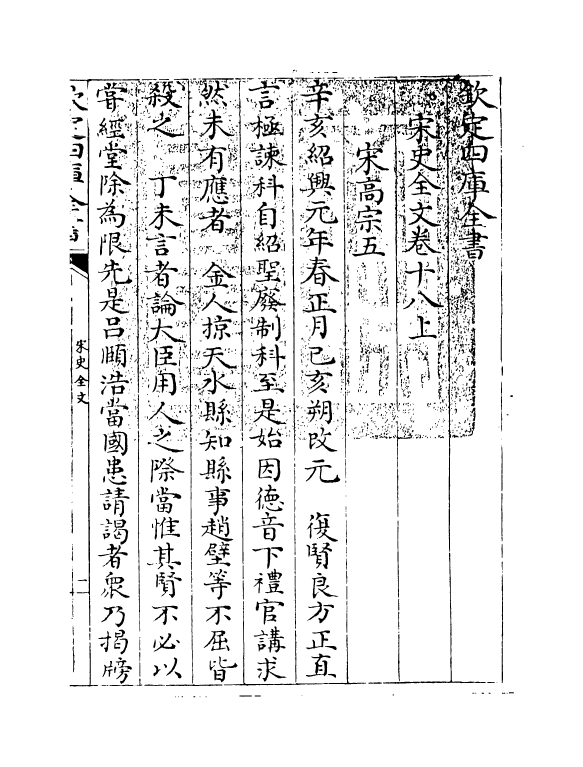 欽定四庫全書
宋史全文卷十八上
宋高宗五
辛亥紹興元年春正月己亥朔改元　復賢良方正直
言極諫科自紹聖廢制科至是始因徳音下禮官講求
然未有應者　金人掠天水縣知縣事趙壁等不屈皆
殺之　丁未言者論大臣用人之際當惟其賢不必以
嘗經堂除為限先是吕頤浩當國患請謁者衆乃揭牓
欽定四庫全書
宋史全文